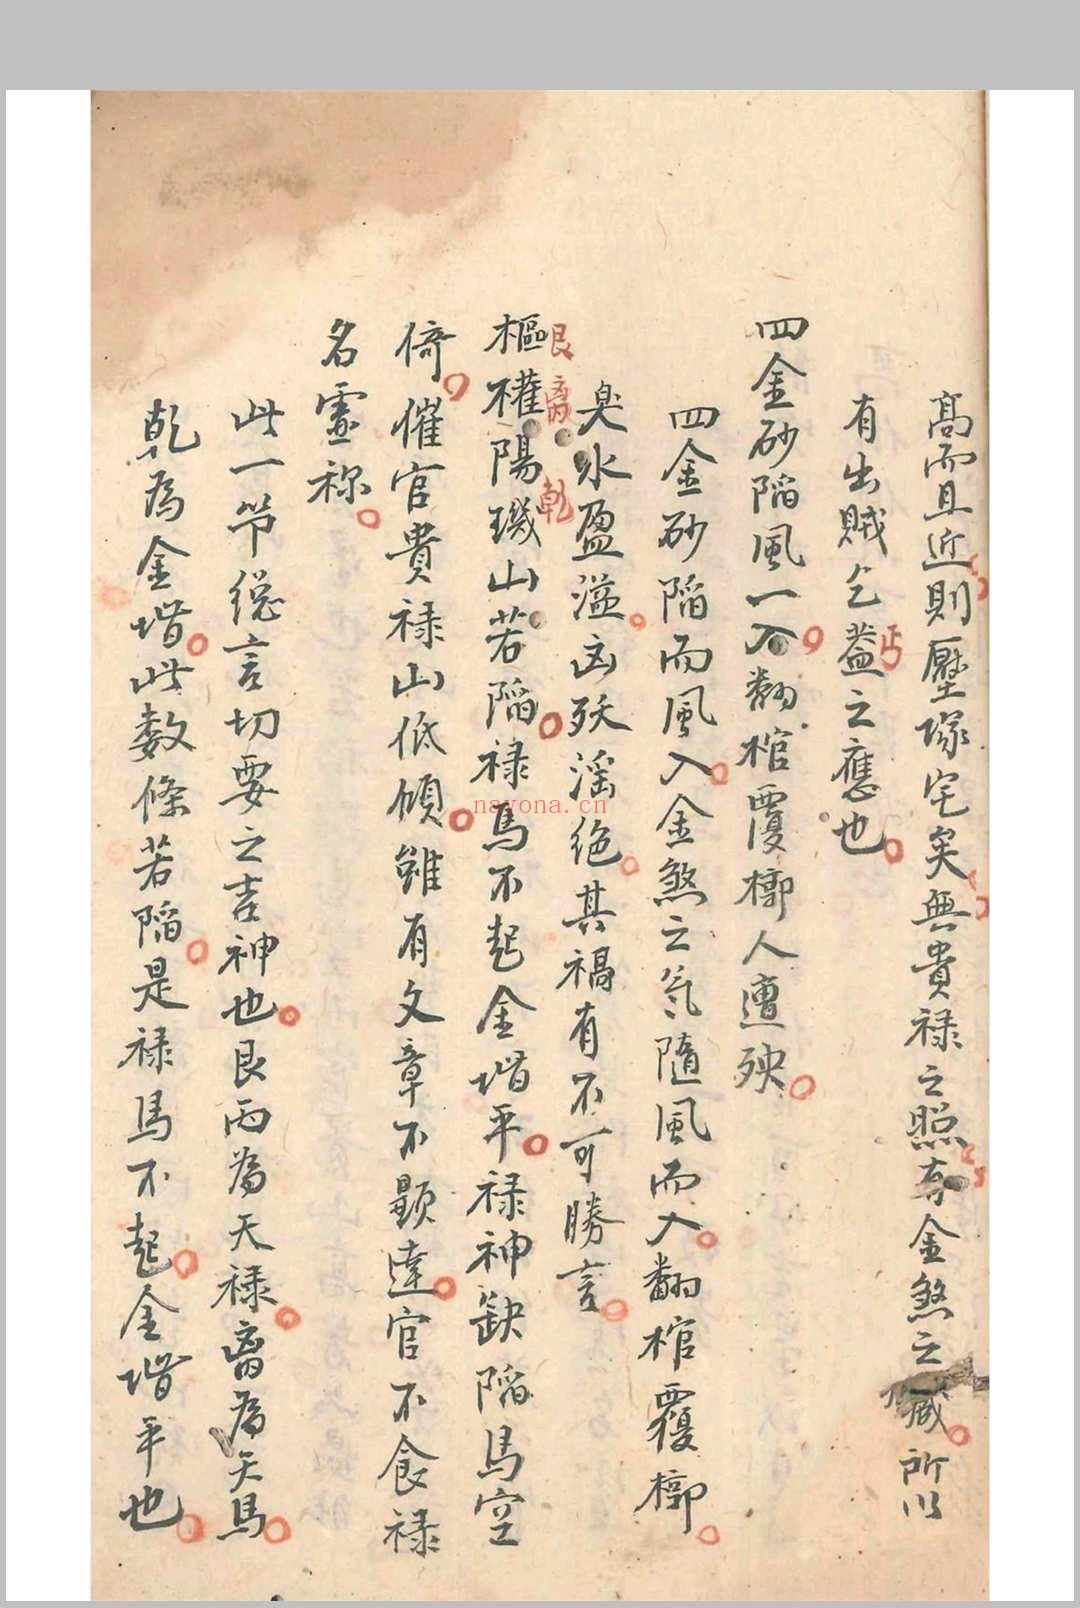 高而且近則壓塚宅矣無貴祿之照有金煞之威所以
有出賊乞丐蓋之應也
四金砂陷風一入翻棺覆槨人遭殃
四金砂陷而風入金煞之氣隨風而入翻棺覆槨
臭水盈溢凶殀滛絶其禍有不可勝言
樞權陽璣山若陷祿馬不起金堦平祿神缺陷馬空
艮離乾
倚催官貴祿山低傾雖有文章不顯達官不食祿
名虛祢
此一節總言切要之吉神也艮丙為天祿离為天馬
乾為金堦此数條若陷是祿馬不起金堦平也
nayona.cn